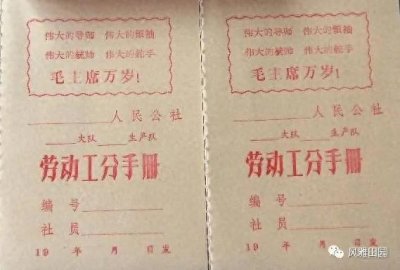 伟大的导师 伟大的领袖
伟大的统帅 伟大的舵手
毛主席万岁!
人民公社
大队 生产队
劳动工分手册
编号
社员
19 年 月 日发
伟大的导师 伟大的领袖
伟大的统帅 伟大的舵手
毛主席万岁!
人民公社
大队 生产队
劳动工分手册
编号
社员
19 年 月 日发
风雅田园